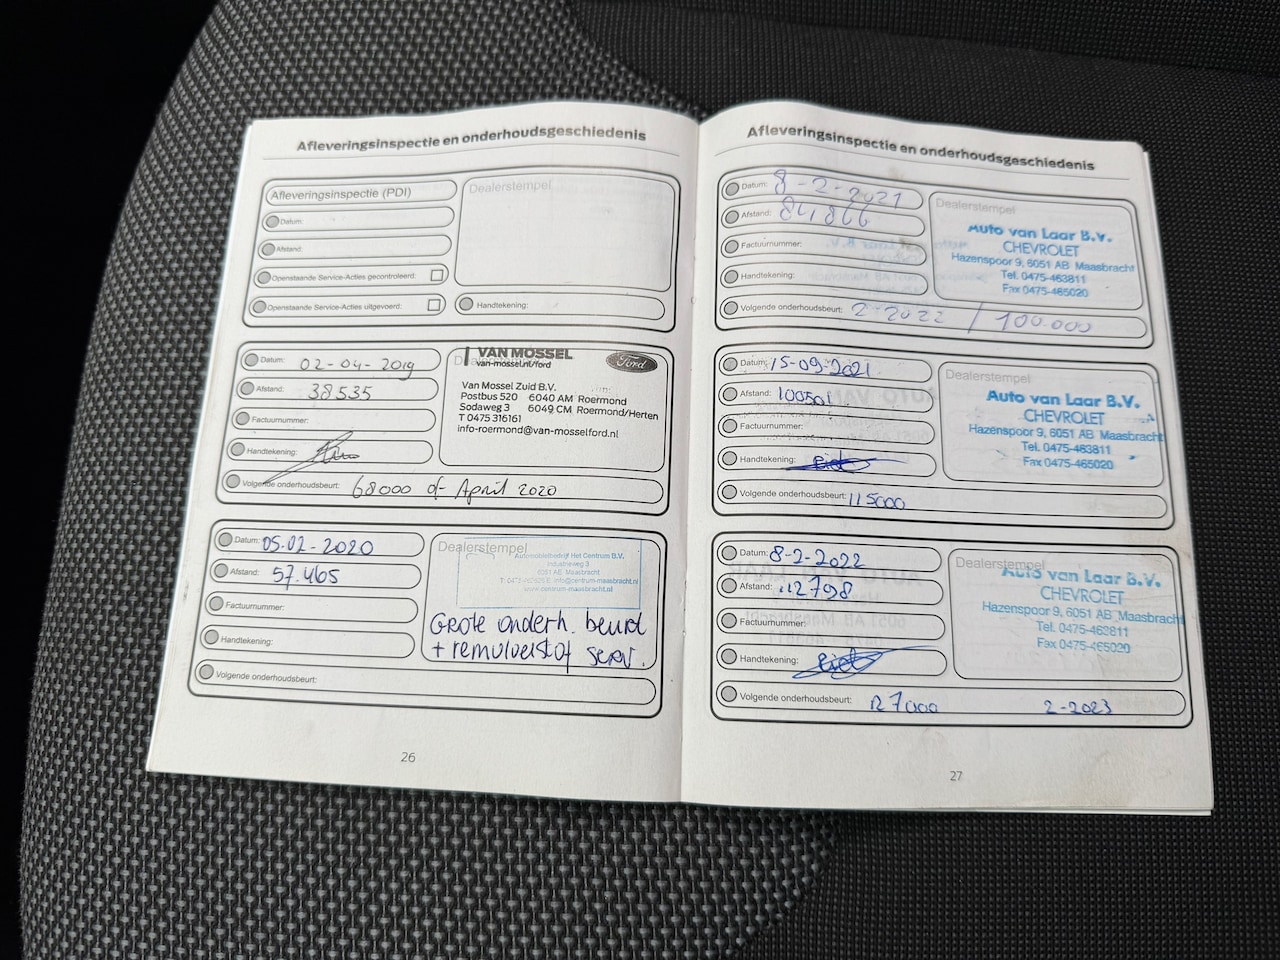 Afleveringsinspectie en onderhoudsgeschiedenis
Afleveringsinspectie (PDI)
Datum:
Afstand:
Openstaande Service-Acties gecontroleerd:
Openstaande Service-Acties uitgevoerd:
Dealerstempel
Handtekening:
Datum: 02-04-2019
Afstand: 38535
Factuurnummer:
Handtekening:
Volgende onderhoudsbeurt: 68000 of April 2020
VAN MOSSEL
van-mossel.nl/ford
Ford
Van Mossel Zuid B.V.
Postbus 520 6040 AM Roermond
Sodaweg 3 6049 CM Roermond/Herten
T 0475 316161
info-roermond@van-mosselford.nl
Datum: 05-02-2020
Afstand: 57.465
Factuurnummer:
Handtekening:
Volgende onderhoudsbeurt:
Dealerstempel
Automobielbedrijf Het Centrum B.V.
Industrieweg 3
6051 AE Maasbracht
info@centrum-maasbracht.nl
www.centrum-maasbracht.nl
Grote onderh. beurt
+ remvloeistof serv.
26
Afleveringsinspectie en onderhoudsgeschiedenis
Datum: 8-2-2021
Afstand: 84,866
Factuurnummer:
Handtekening:
Volgende onderhoudsbeurt: 2-2022 / 100.000
Dealerstempel
Auto van Laar B.V.
CHEVROLET
Hazenspoor 9, 6051 AB Maasbracht
Tel. 0475-463811
Fax 0475-465020
Datum: 15-09-2021
Afstand: 100501
Factuurnummer:
Handtekening:
Volgende onderhoudsbeurt: 115000
Dealerstempel
Auto van Laar B.V.
CHEVROLET
Hazenspoor 9, 6051 AB Maasbracht
Tel. 0475-463811
Fax 0475-465020
Datum: 8-2-2022
Afstand: 112798
Factuurnummer:
Handtekening:
Volgende onderhoudsbeurt: 127000 2-2023
Dealerstempel
Auto van Laar B.V.
CHEVROLET
Hazenspoor 9, 6051 AB Maasbracht
Tel. 0475-463811
Fax 0475-465020
27